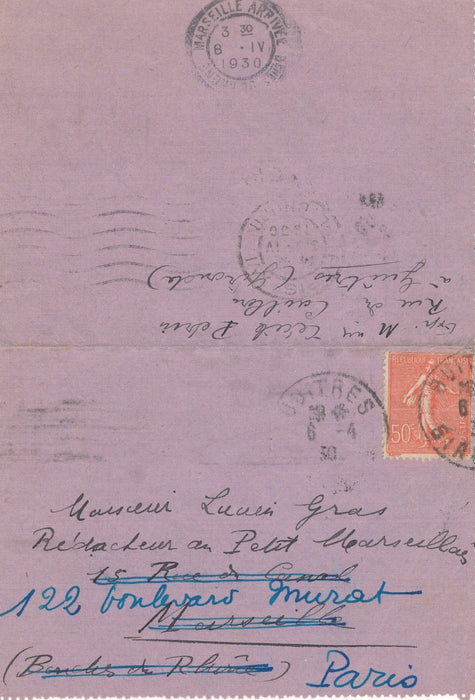 MARSEILLE ARRIVÉE
3 30
8 · IV
1930
exp: M Cécile Petrie
Rue de
à Guîtres (Gironde)
REPUBLIQUE FRANÇAISE
50c
GUITRES
6 -4
30
Monsieur Lucien Gras
Rédacteur au Petit Marseillais
15 Rue du Canal
122 boulevard Murat
Marseille
(Bouches du Rhône) Paris